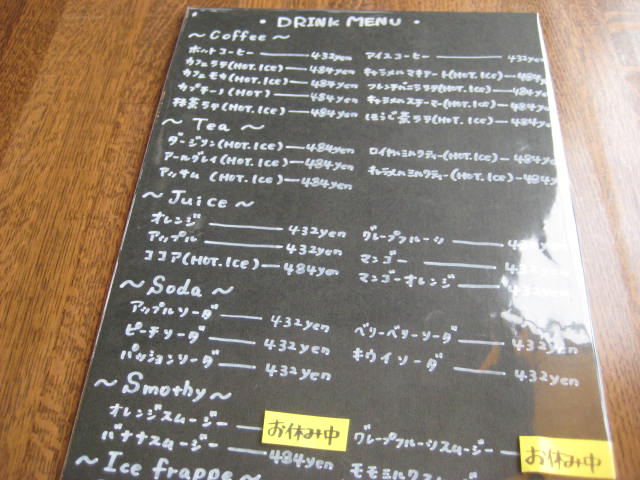 ・DRINK MENU・
～Coffee～
ホットコーヒー ― 432yen アイスコーヒー ― 432yen
カフェラテ(HOT.ICE) ― 484yen キャラメルマキアート(HOT.ICE) ― 484y
カフェモカ(HOT.ICE) ― 484yen フレンチバニララテ(HOT.ICE) ― 484yen
カプチーノ(HOT) ― 484yen キャラメルスチーマー(HOT.ICE) ― 484yen
抹茶ラテ(HOT.ICE) ― 484yen ほうじ茶ラテ(HOT.ICE) ― 484yen
～Tea～
ダージリン(HOT.ICE) ― 484yen ロイヤルミルクティー(HOT.ICE) ― 484yen
アールグレイ(HOT.ICE) ― 484yen キャラメルミルクティー(HOT.ICE) ― 484y
アッサム (HOT.ICE) ― 484yen
～Juice～
オレンジ ― 432yen グレープフルーツ ― 432yen
アップル ― 432yen マンゴー ― 432yen
ココア(HOT.ICE) ― 484yen マンゴーオレンジ ― 432yen
～Soda～
アップルソーダ ― 432yen ベリーベリーソーダ ― 432yen
ピーチソーダ ― 432yen キウイソーダ ― 432yen
パッションソーダ ― 432yen
～Smothy～
オレンジスムージー ― お休み中 グレープフルーツスムージー ― お休み中
バナナスムージー ― 484yen モモミルクスムージー
～Ice frappe～